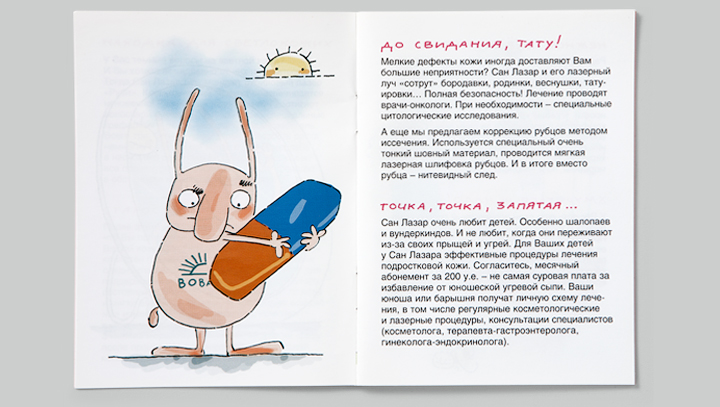 ВОВА
ДО СВИДАНИЯ, ТАТУ!
Мелкие дефекты кожи иногда доставляют Вам
большие неприятности? Сан Лазар и его лазерный
луч «сотрут» бородавки, родинки, веснушки, тату-
ировки… Полная безопасность! Лечение проводят
врачи-онкологи. При необходимости – специальные
цитологические исследования.
А еще мы предлагаем коррекцию рубцов методом
иссечения. Используется специальный очень
тонкий шовный материал, проводится мягкая
лазерная шлифовка рубцов. И в итоге вместо
рубца – нитевидный след.
ТОЧКА, ТОЧКА, ЗАПЯТАЯ...
Сан Лазар очень любит детей. Особенно шалопаев
и вундеркиндов. И не любит, когда они переживают
из-за своих прыщей и угрей. Для Ваших детей
у Сан Лазара эффективные процедуры лечения
подростковой кожи. Согласитесь, месячный
абонемент за 200 у.е. – не самая суровая плата за
избавление от юношеской угревой сыпи. Ваши
юноша или барышня получат личную схему лече-
ния, в том числе регулярные косметологические
и лазерные процедуры, консультации специалистов
(косметолога, терапевта-гастроэнтеролога,
гинеколога-эндокринолога).